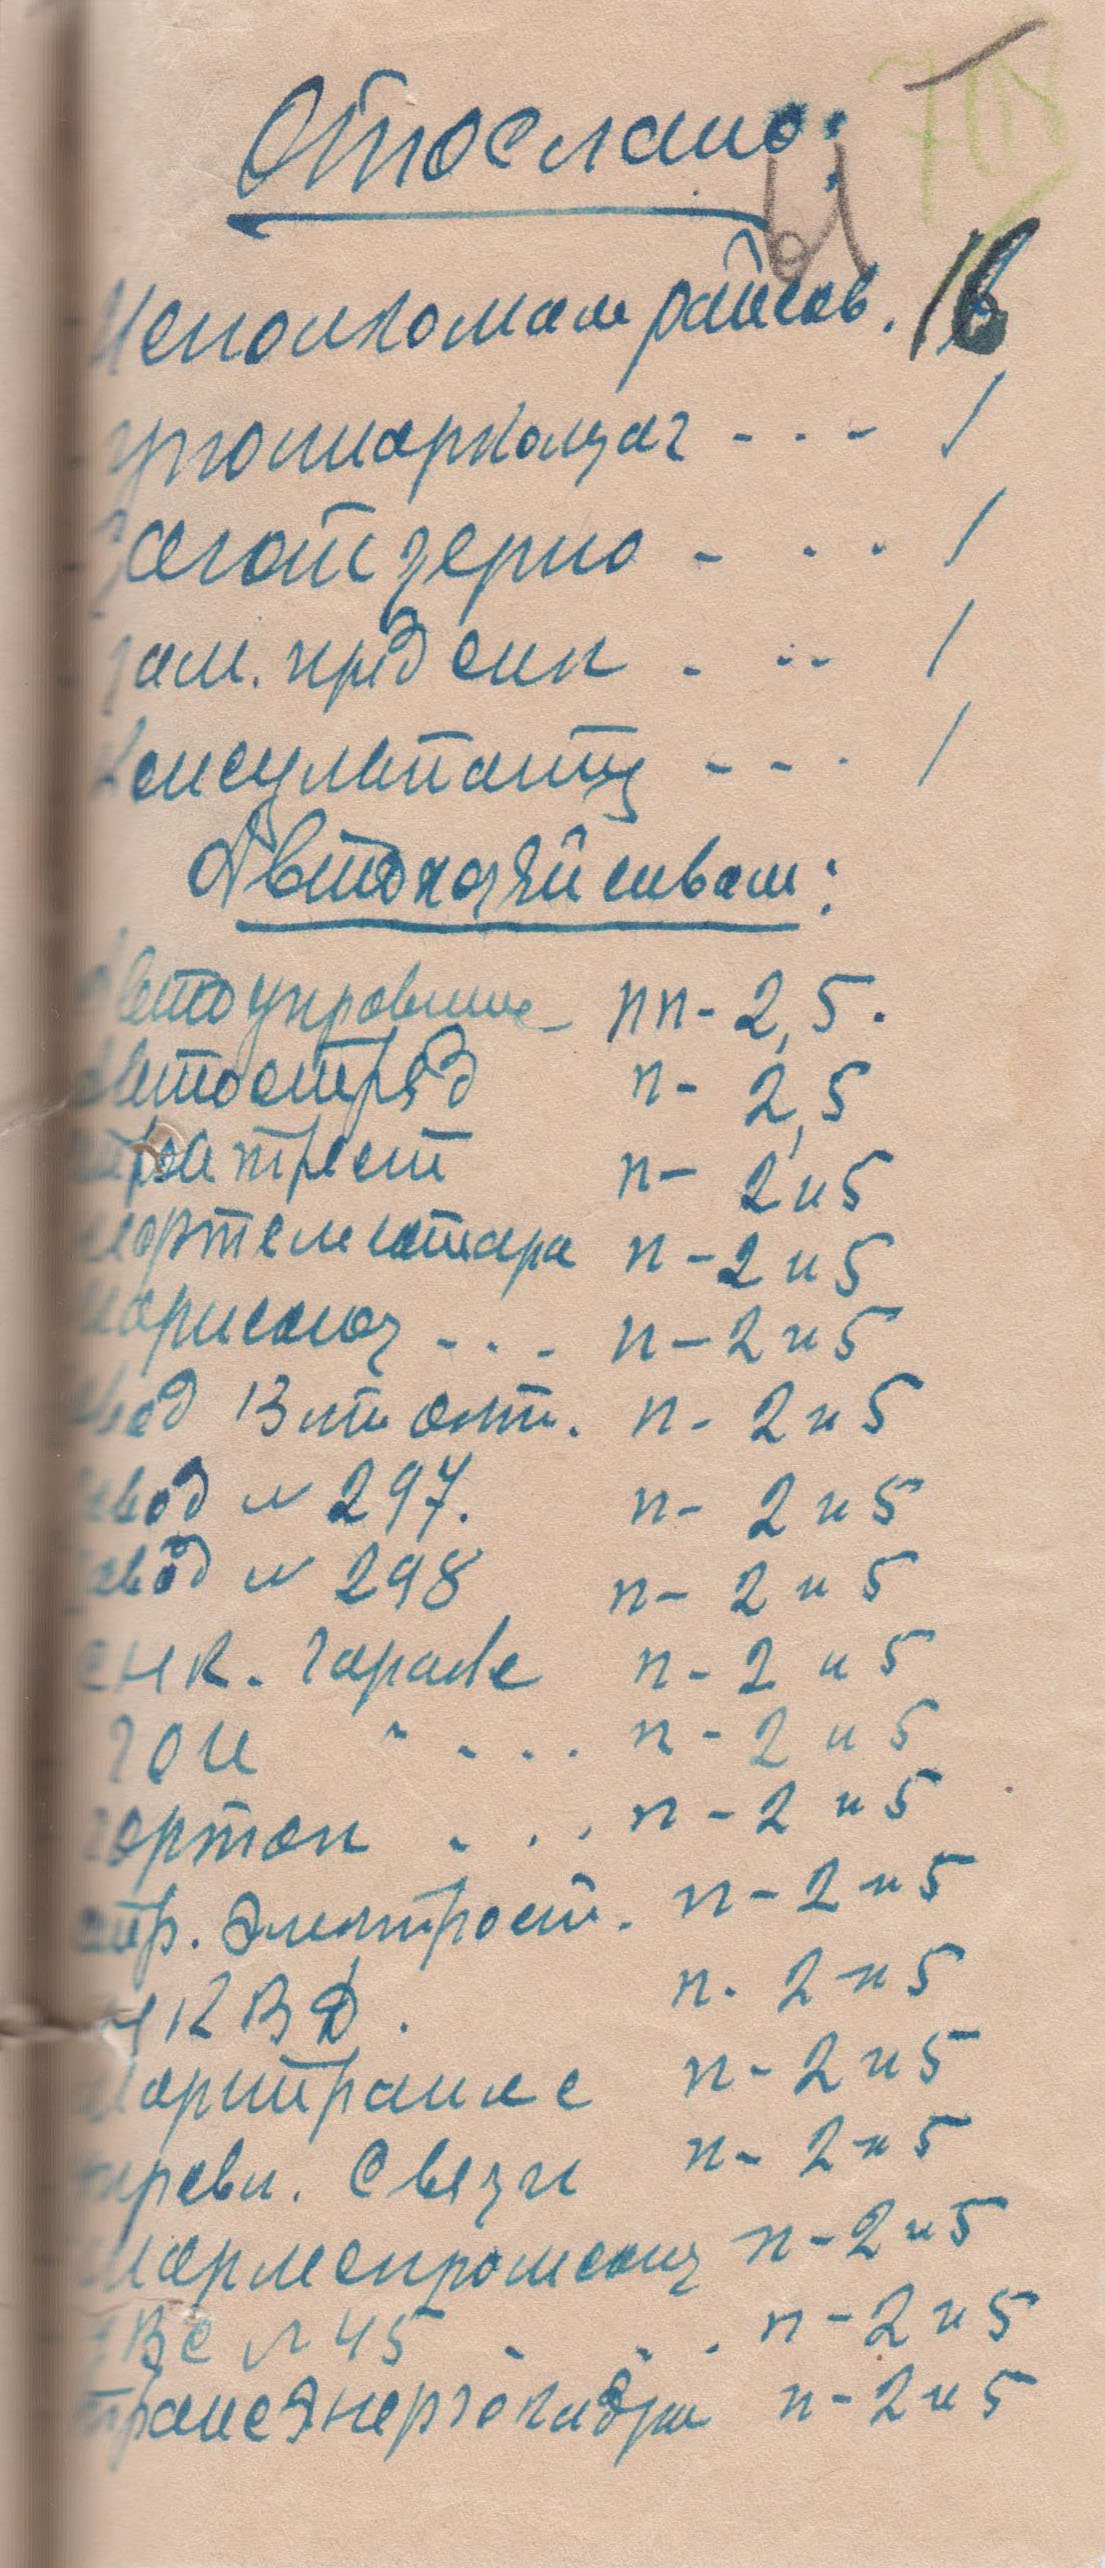 Отослано:
61
Исполкомам райсов. 16
Употмаркомзаг - - - 1
Заготзерно - - - 1
Зам. пред снк - - - 1
Консультанту - - - 1
Автохозяйствам:
Автоуправление пп - 2,5.
Автоотряд п - 2,5
трест п - 2 и 5
Мартежтара п - 2 и 5
Марисоюз - - - п - 2 и 5
завод Вит п - 2 и 5
завод № 297. п - 2 и 5
завод № 298 п - 2 и 5
СНК. гараж п - 2 и 5
ГОИ " - - - п - 2 и 5
Гортоп - - - п - 2 и 5
стр. Электрост. п - 2 и 5
НКВД. п - 2 и 5
Маритранс п - 2 и 5
управл. Связи п - 2 и 5
Марлеспромсоюз п - 2 и 5
№ 45 - - - п - 2 и 5
Трансэнергокадры п - 2 и 5